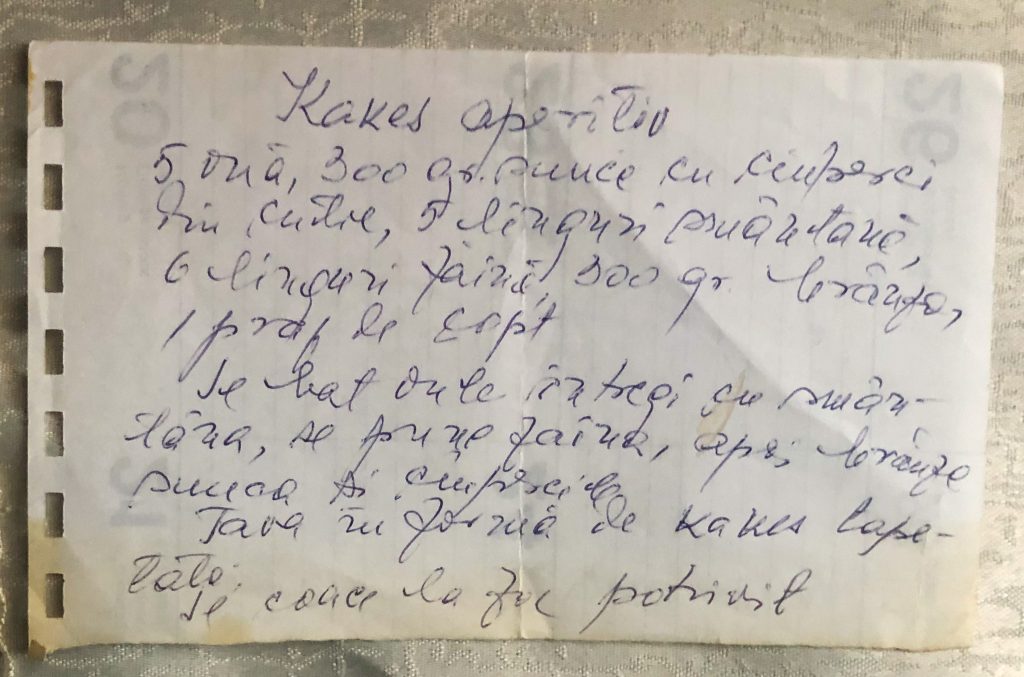 Kakes aperitiv
5 ouă, 300 gr. șunce cu ciuperci
din cutie, 5 linguri smântană,
6 linguri făină, 300 gr. brânză,
1 praf de copt
Se bat oule întregi cu smân-
tâna, se pune făina, apoi brânza
șunca și ciupercile
Tava în formă de kakes tape-
tată.
Se coace la foc potrivit